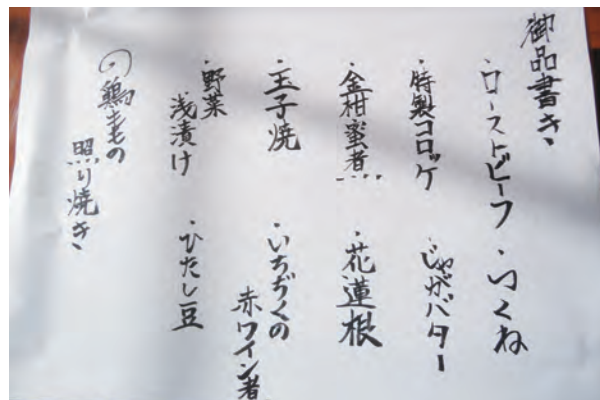 御品書き
・ローストビーフ
・つくね
・特製コロッケ
・じゃがバター
・金柑蜜煮
・花蓮根
・玉子焼
・いちぢくの
赤ワイン煮
・野菜
浅漬け
・ひたし豆
鶏ももの
照り焼き